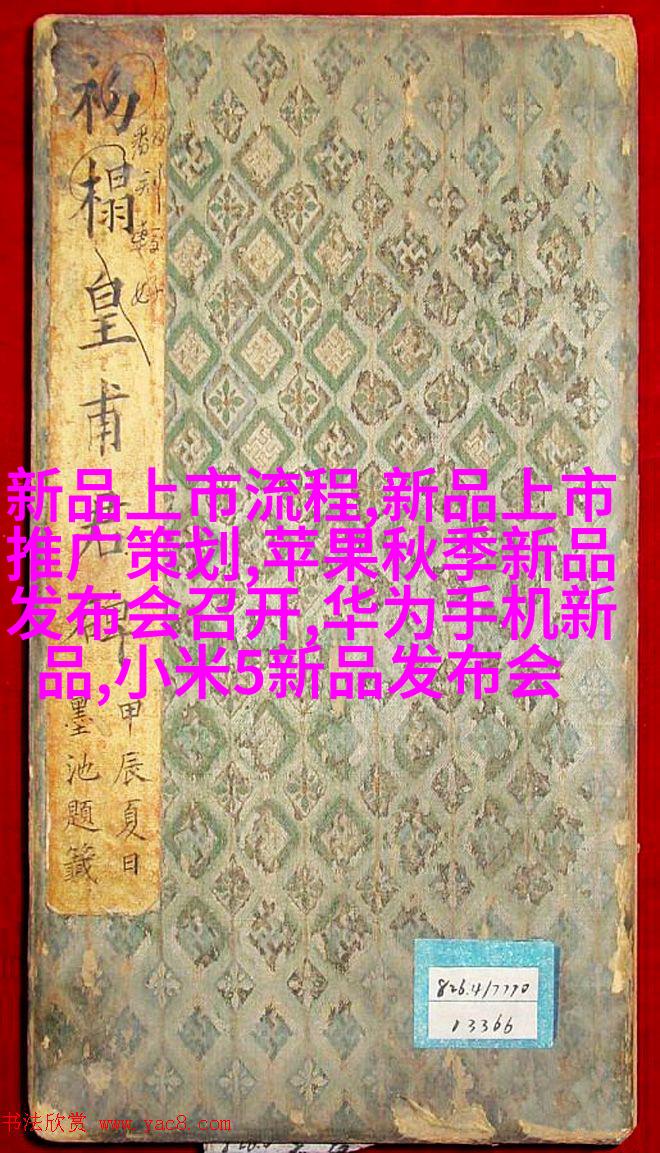 初榻皇甫君碑
甲辰夏日
墨池題籤
新品上市流程,新品上市
推广策划,苹果秋季新品
发布会召开,华为手机新
品,小米5新品发布会
826.4/7770
13366
书法欣赏 www.yac8.com